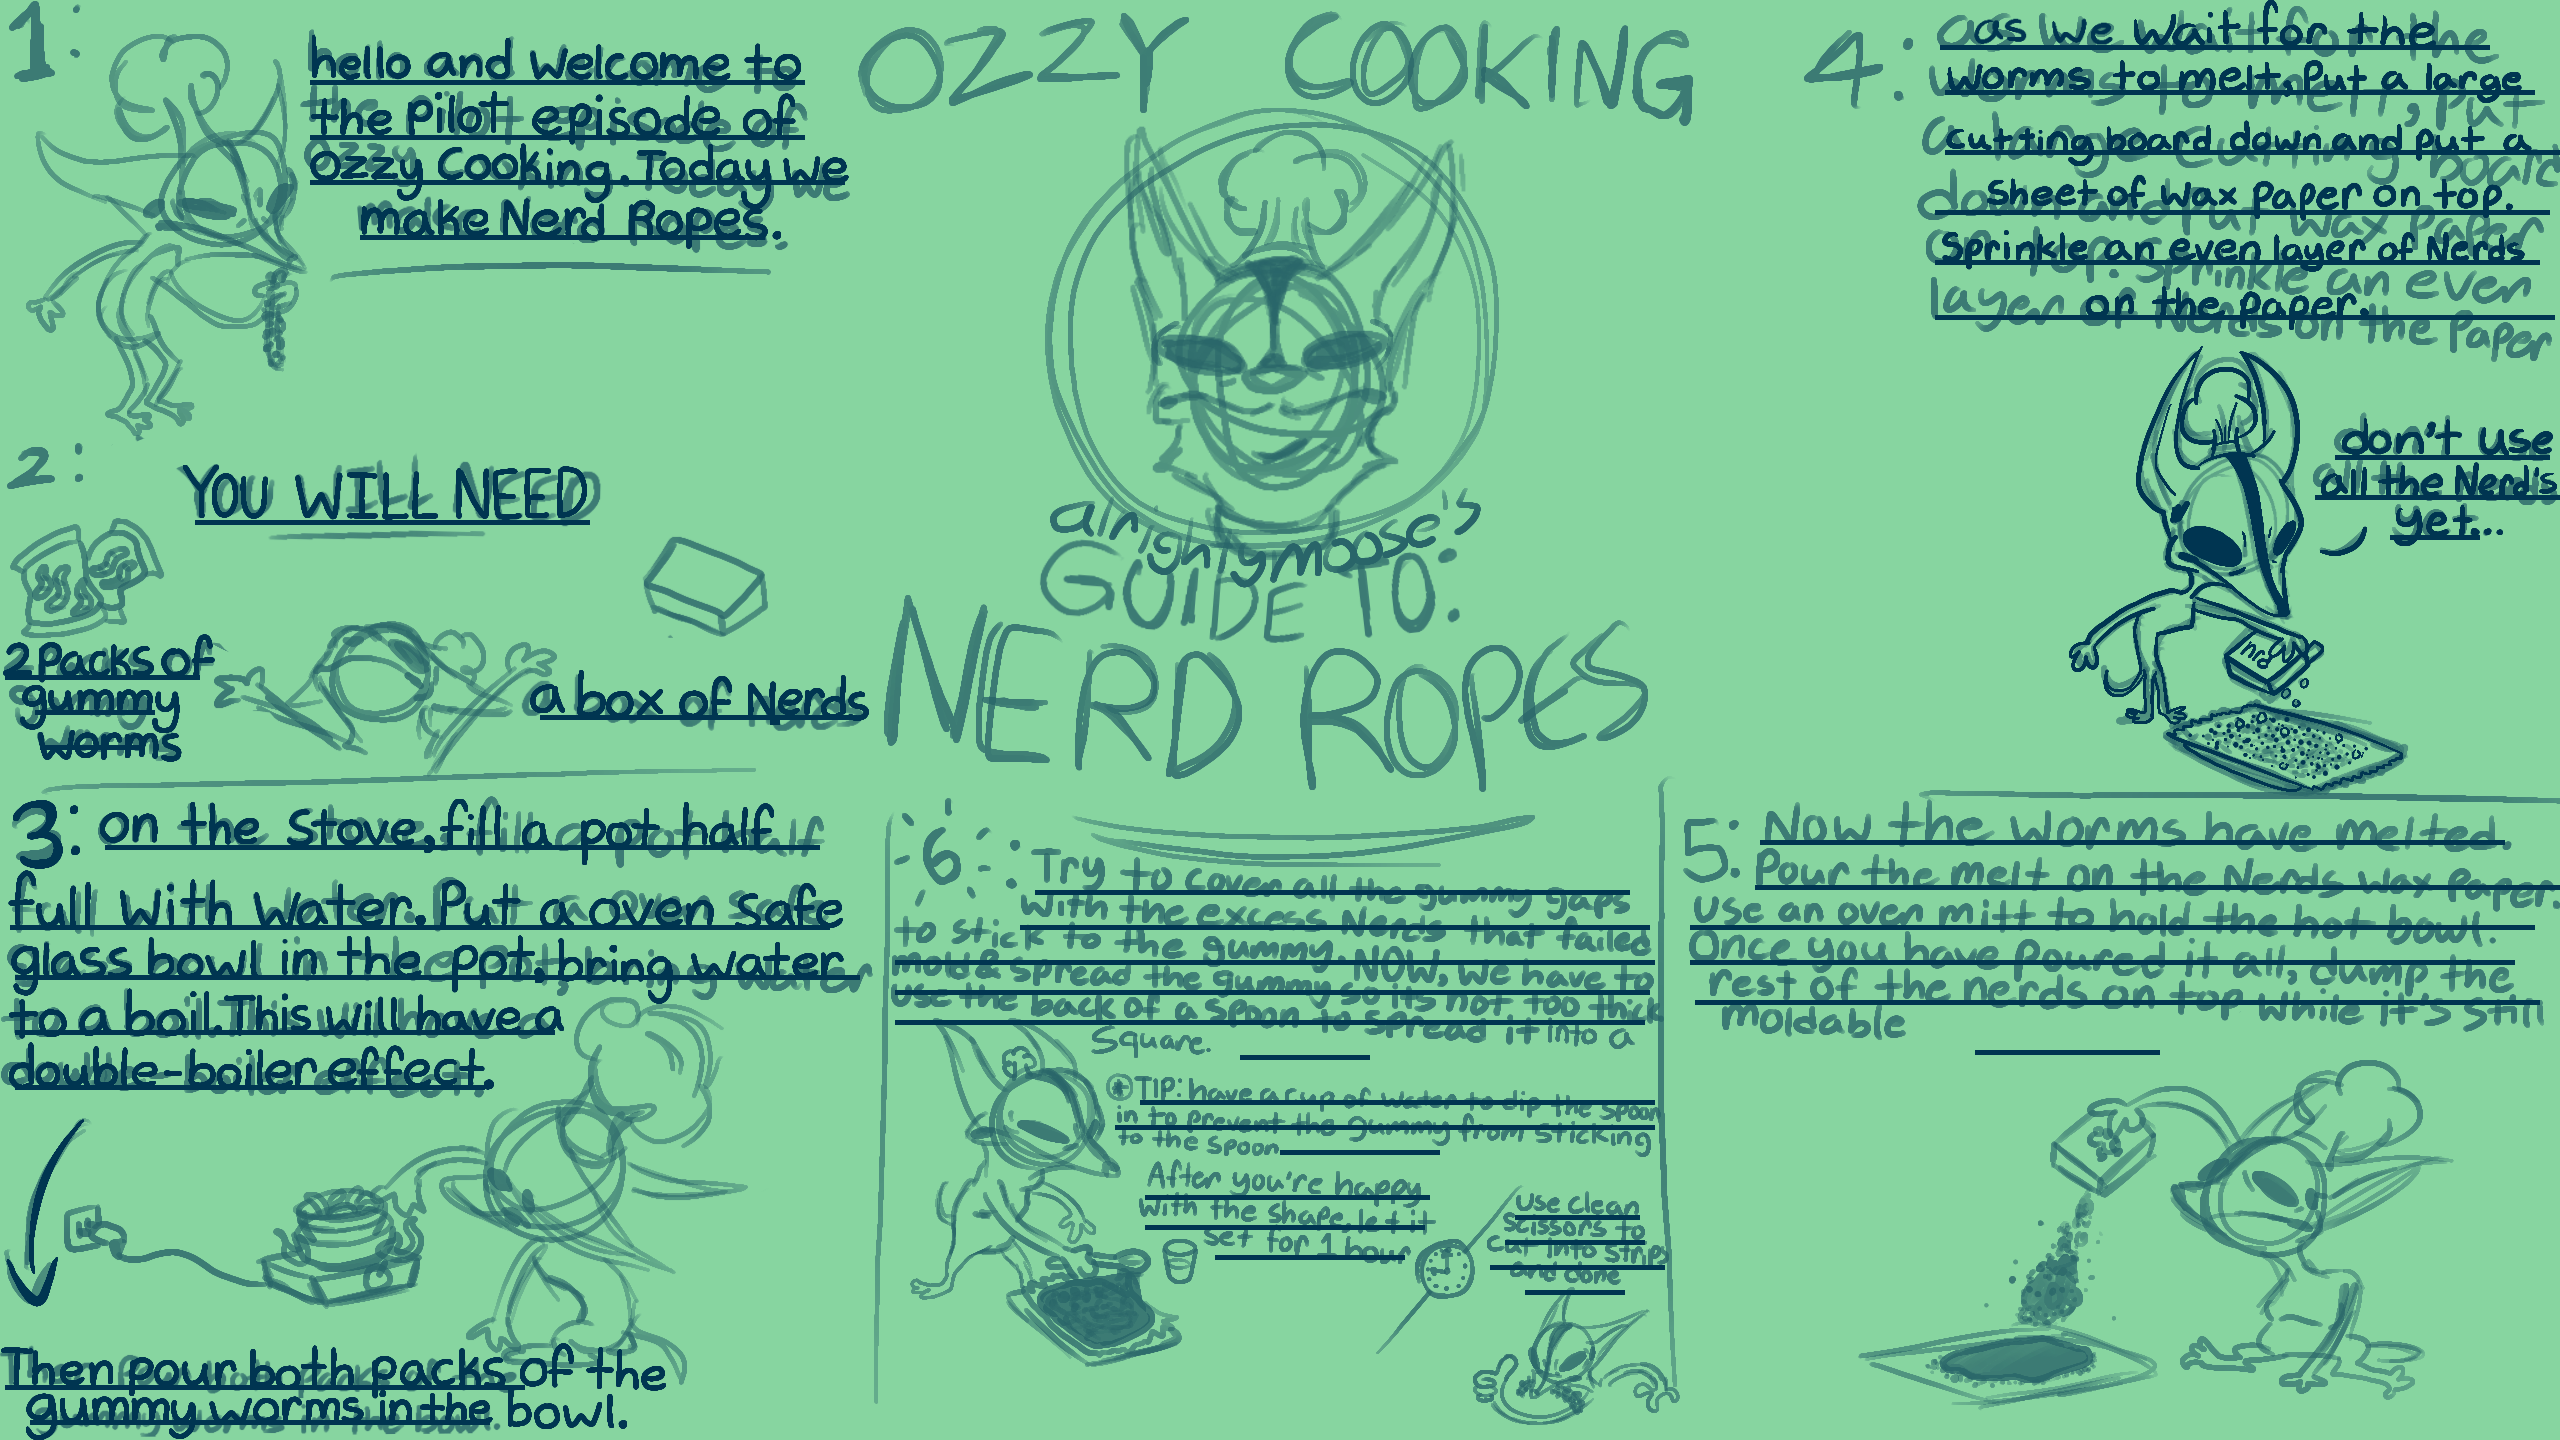 OZZY COOKING
alrightymoose's
GUIDE TO:
NERD ROPES
1:
hello and welcome to
the pilot episode of
Ozzy Cooking. Today we
make Nerd Ropes.
2:
YOU WILL NEED
2 packs of
gummy
worms
a box of Nerds
3: on the stove, fill a pot half
full with water. Put a oven safe
glass bowl in the pot, bring water
to a boil. This will have a
double-boiler effect.
Then pour both packs of the
gummy worms in the bowl.
4:
as we wait for the
worms to melt, put a large
cutting board down and put a
sheet of wax paper on top.
Sprinkle an even layer of Nerds
on the paper.
don't use
all the Nerd's
yet...
nrd
5: Now the worms have melted.
Pour the melt on the Nerds wax paper.
use an oven mitt to hold the hot bowl.
Once you have poured it all, dump the
rest of the nerds on top while it's still
moldable
6: Try to cover all the gummy gaps
with the excess Nerds that failed
to stick to the gummy. NOW, we have to
mold & spread the gummy so its not too thick
use the back of a spoon to spread it into a
square.
* TIP: have a cup of water to dip the spoon
in to prevent the gummy from sticking
to the spoon
After you're happy
with the shape, let it
set for 1 hour
use clean
scissors to
cut into strips
and done